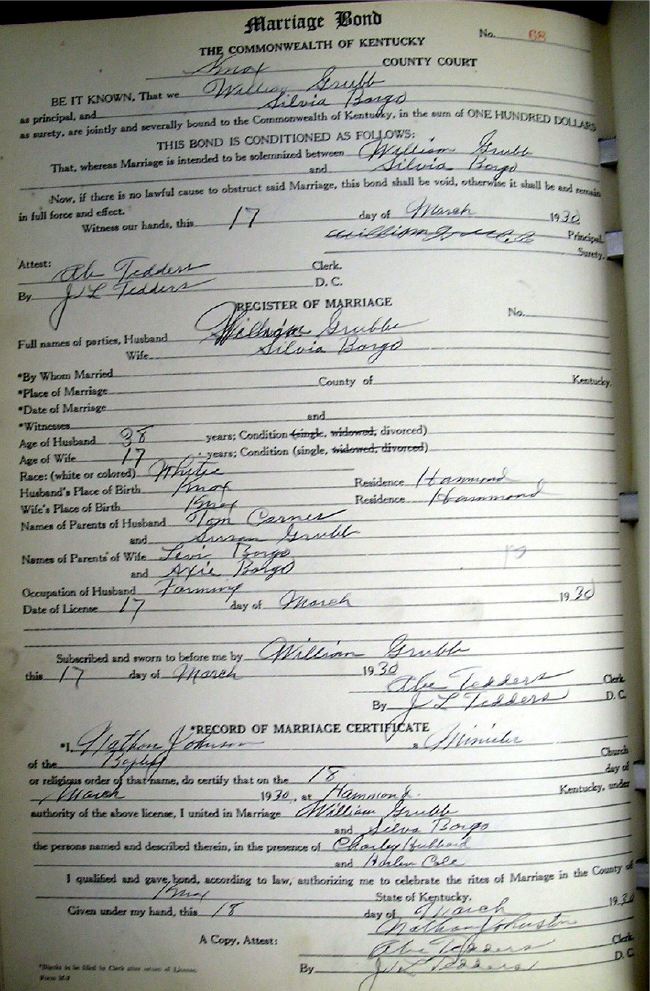 Marriage Bond
No. 68
THE COMMONWEALTH OF KENTUCKY
Knox COUNTY COURT
BE IT KNOWN, That we William Grubb
as principal, and Silvia Bargo
as surety, are jointly and severally bound to the Commonwealth of Kentucky, in the sum of ONE HUNDRED DOLLARS
THIS BOND IS CONDITIONED AS FOLLOWS:
That, whereas Marriage is intended to be solemnized between William Grubb
and Silvia Bargo
Now, if there is no lawful cause to obstruct said Marriage, this bond shall be void, otherwise it shall be and remain
in full force and effect.
Witness our hands, this 17 day of March 1930
William Principal.
Surety.
Attest: Abe Tedders Clerk.
By J L Tedders D. C.
REGISTER OF MARRIAGE
No.
Full names of parties, Husband William Grubb
Wife Silvia Bargo
*By Whom Married
*Place of Marriage County of Kentucky.
*Date of Marriage
*Witnesses and
Age of Husband 38 years; Condition (single, widowed, divorced)
Age of Wife 17 years; Condition (single, widowed, divorced)
Race: (white or colored) White
Husband's Place of Birth Knox Residence Hammond
Wife's Place of Birth Knox Residence Hammond
Names of Parents of Husband Tom Carnes
and Susan Grubb
Names of Parents of Wife Levi Bargo
and Axie Bargo
Occupation of Husband Farming
Date of License 17 day of March 1930
Subscribed and sworn to before me by William Grubb
this 17 day of March 1930
Abe Tedders Clerk
By J L Tedders D. C.
*RECORD OF MARRIAGE CERTIFICATE
*I, Nathan Johnson a Minister
of the Baptist Church
or religious order of that name, do certify that on the 18 day of
March 1930, at Hammond. Kentucky, under
authority of the above license, I united in Marriage William Grubb
and Silva Bargo
the persons named and described therein, in the presence of Charley Hubbard
and Harlen Cole
I qualified and gave bond, according to law, authorizing me to celebrate the rites of Marriage in the County of
Knox State of Kentucky.
Given under my hand, this 18 day of March 1930
Nathan Johnson
A Copy, Attest: Abe Tedders Clerk
By J L Tedders D. C.
*Blanks to be filled by Clerk after return of License.